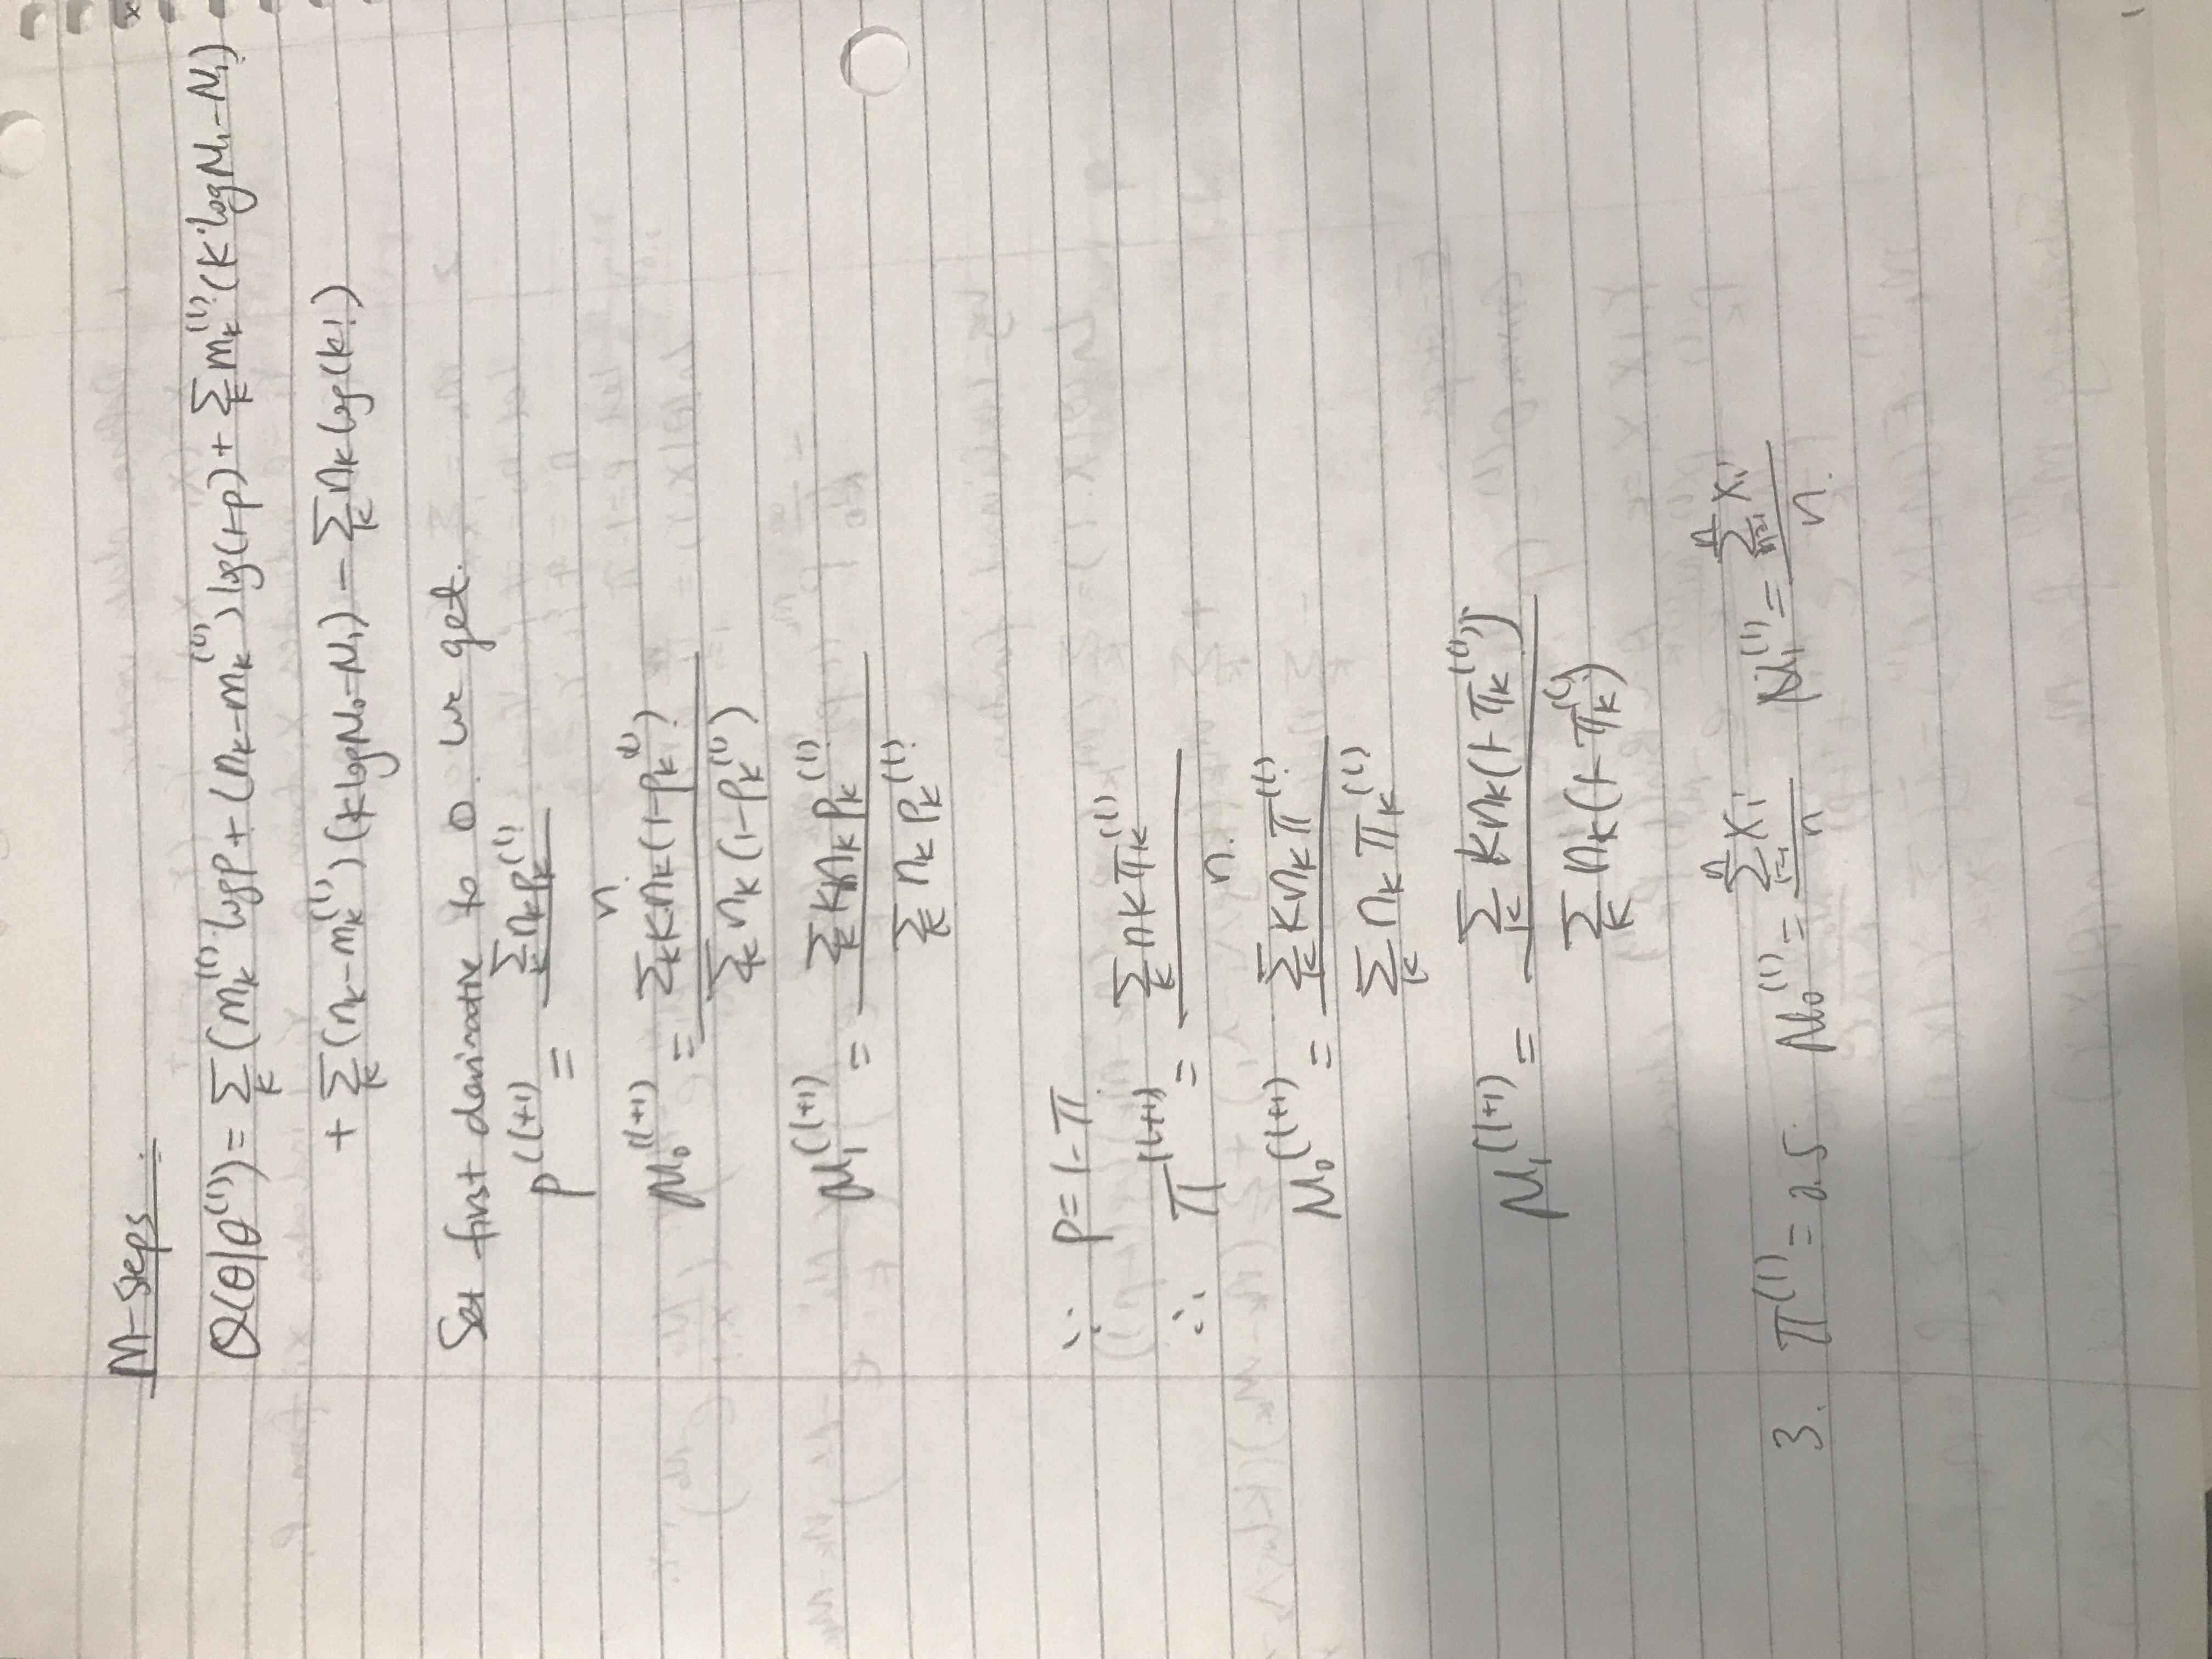 M-steps :
Q(θ|θ^(l)) = Σ_k (m_k^(l) log p + (n_k - m_k^(l)) log(1-p) + Σ_k m_k^(l) (k log μ_1 - μ_1)
+ Σ_k (n_k - m_k^(l)) (k log μ_0 - μ_1) - Σ_k n_k log(k!)
Set first derivative to 0. we get.
p^(l+1) = Σ_k n_k p_k^(l) / n.
μ_0^(l+1) = Σ_k k n_k (1-p_k^(l)) / Σ_k n_k (1-p_k^(l))
μ_1^(l+1) = Σ_k k n_k p_k^(l) / Σ_k n_k p_k^(l)
∵ p = 1-π.
∴ π^(l+1) = Σ_k nk π_k^(l) / n.
μ_0^(l+1) = Σ_k k n_k π^(l) / Σ_k n_k π_k^(l)
μ_1^(l+1) = Σ_k k n_k (1-π_k^(l)) / Σ_k n_k (1-π_k^(l))
3. π^(1) = 0.5 μ_0^(1) = Σ_{i=1}^n X_i / n μ_1^(1) = Σ_{n=1}^n X_i / n.